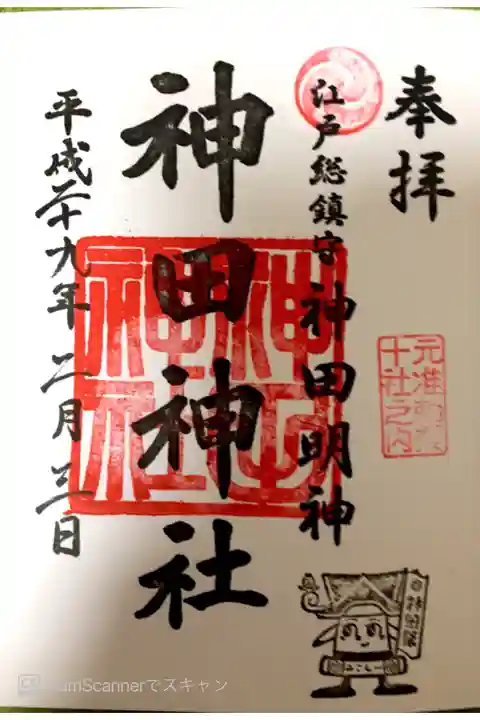 奉拝
江戸総鎮守 神田明神
神田神社
平成二十九年 二月三日
神田
神社
元准勅祭
十社之内
みこしー
CamScannerでスキャン